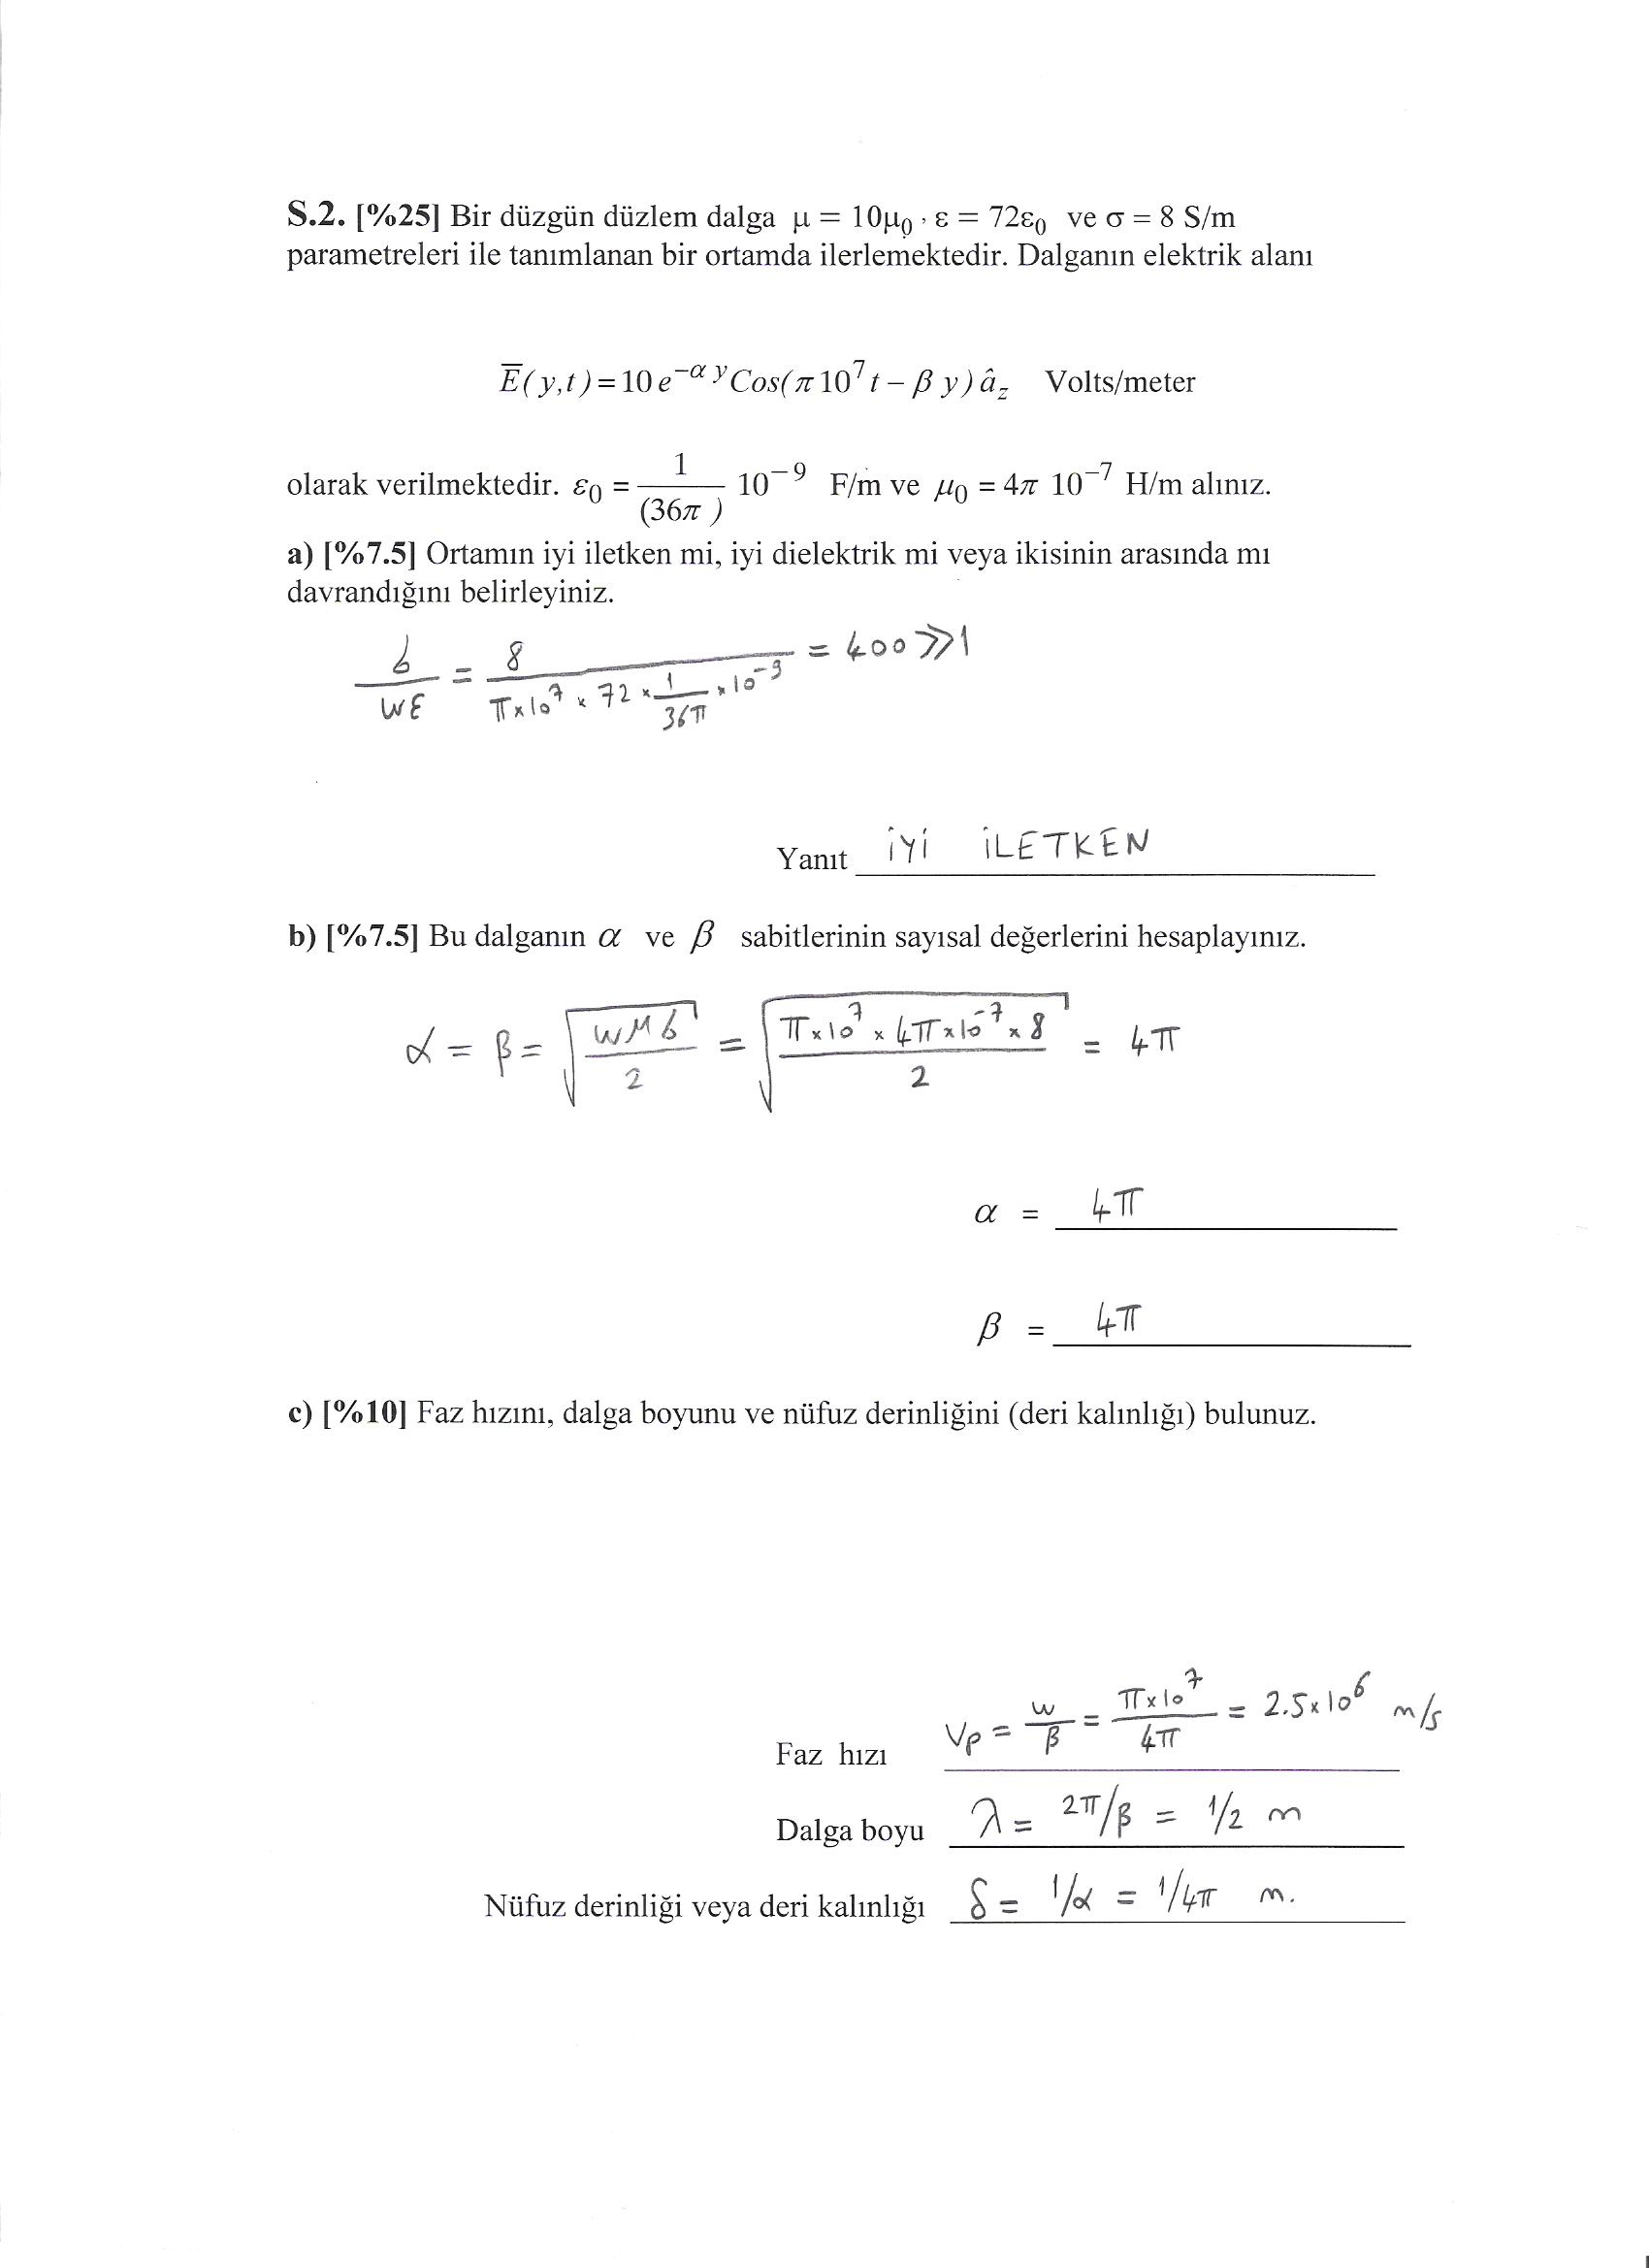 S.2. [%25] Bir düzgün düzlem dalga μ = 10μ₀ , ε = 72ε₀ ve σ = 8 S/m
parametreleri ile tanımlanan bir ortamda ilerlemektedir. Dalganın elektrik alanı
E̅(y,t)=10 e^{-α y} Cos(π10⁷ t – β y) â_z Volts/meter
olarak verilmektedir. ε₀ = 1/(36π) 10⁻⁹ F/m ve μ₀ = 4π 10⁻⁷ H/m alınız.
a) [%7.5] Ortamın iyi iletken mi, iyi dielektrik mi veya ikisinin arasında mı
davrandığını belirleyiniz.
σ/wε = 8/(π×10⁷ × 72 × 1/36π × 10⁻⁹) = 400 ≫ 1
Yanıt İYİ İLETKEN
b) [%7.5] Bu dalganın α ve β sabitlerinin sayısal değerlerini hesaplayınız.
α = β = √(wμσ/2) = √(π×10⁷ × 4π×10⁻⁷ × 8/2) = 4π
α = 4π
β = 4π
c) [%10] Faz hızını, dalga boyunu ve nüfuz derinliğini (deri kalınlığı) bulunuz.
Faz hızı Vp = w/β = π×10⁷/4π = 2.5×10⁶ m/s
Dalga boyu λ = 2π/β = 1/2 m
Nüfuz derinliği veya deri kalınlığı δ = 1/α = 1/4π m.